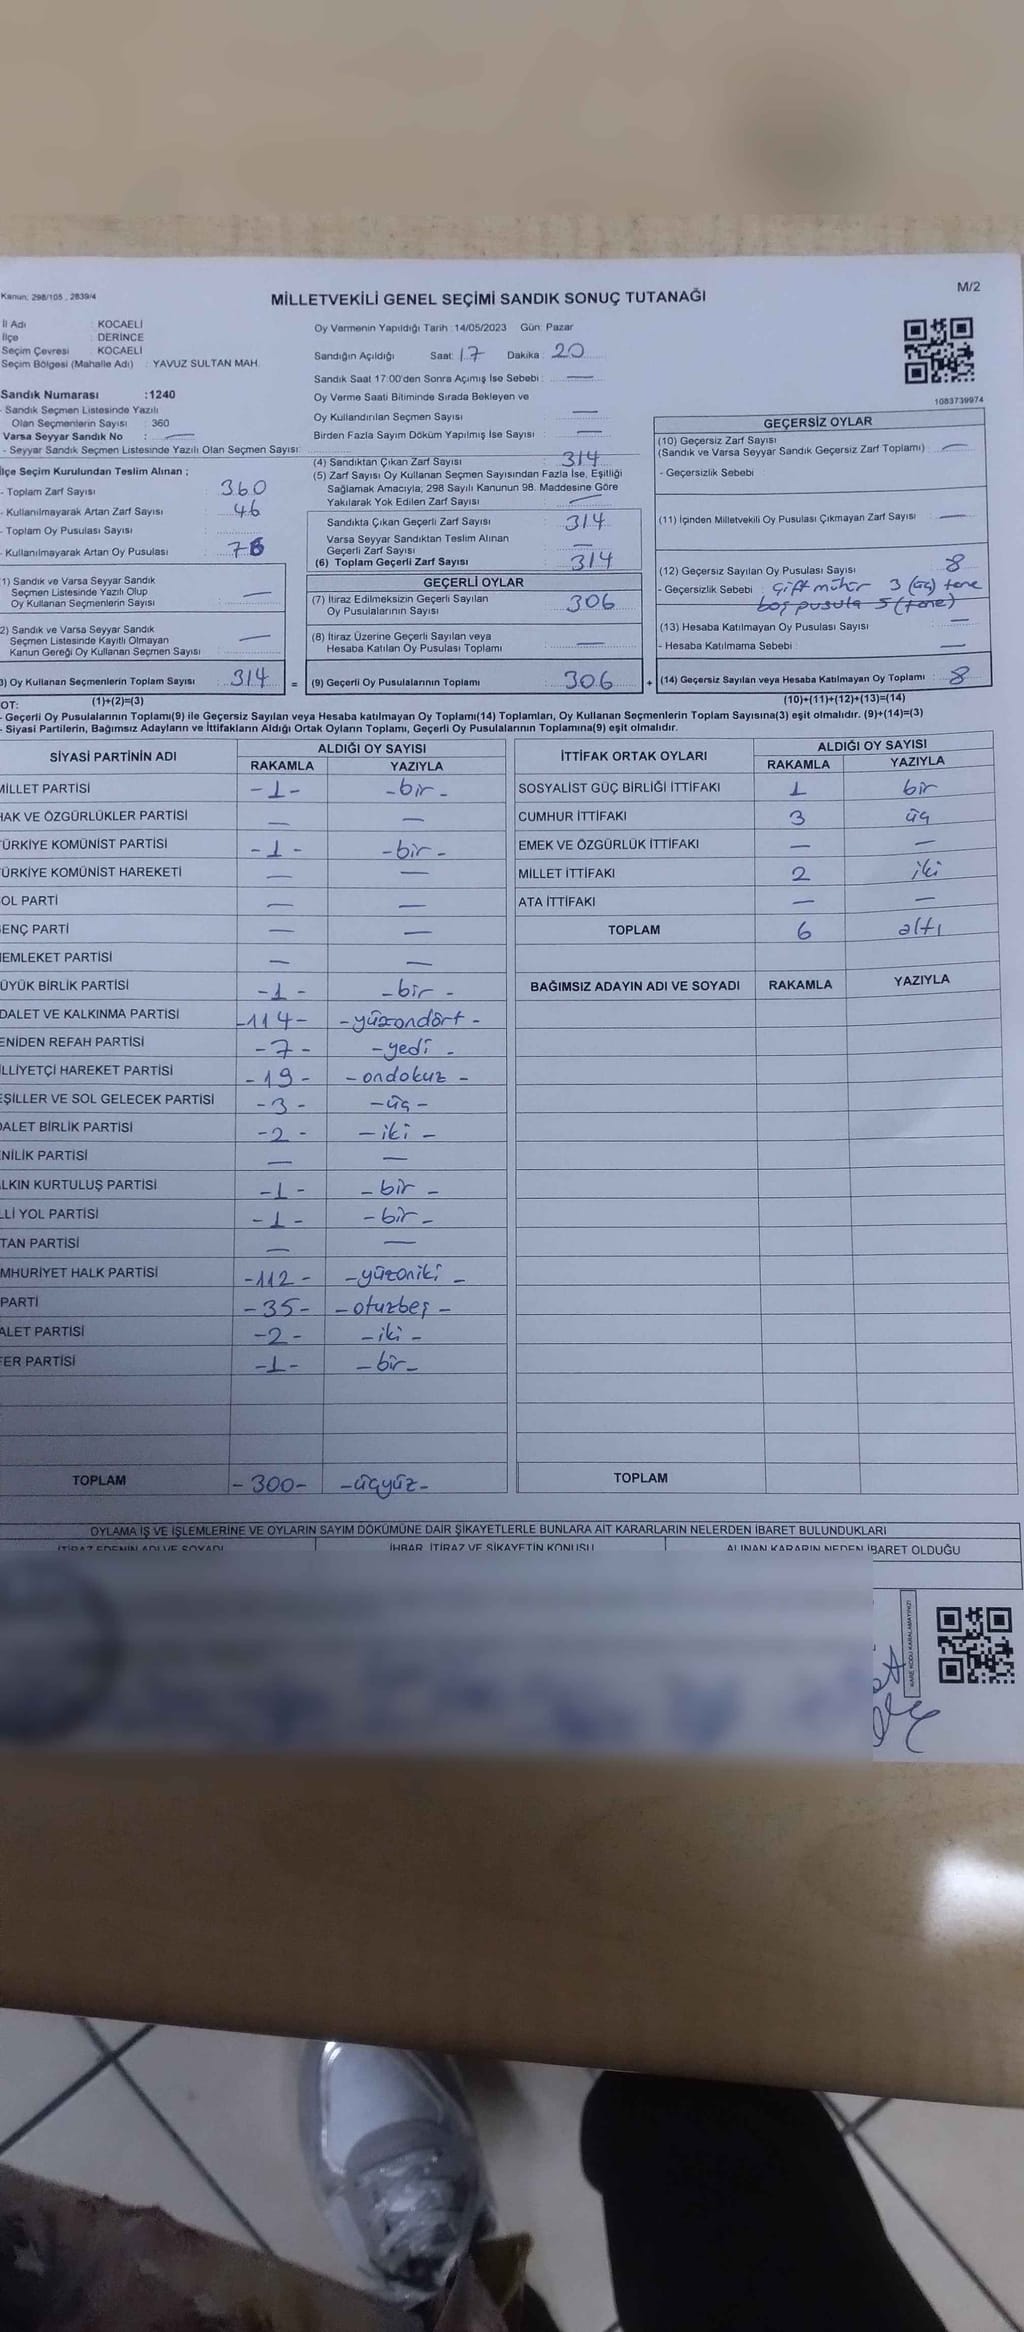 Kanun: 298/105 , 2839/4
MİLLETVEKİLİ GENEL SEÇİMİ SANDIK SONUÇ TUTANAĞI
M/2
İl Adı : KOCAELİ
İlçe : DERİNCE
Seçim Çevresi : KOCAELİ
Seçim Bölgesi (Mahalle Adı) : YAVUZ SULTAN MAH.
Sandık Numarası :1240
- Sandık Seçmen Listesinde Yazılı
Olan Seçmenlerin Sayısı : 360
Varsa Seyyar Sandık No : —
- Seyyar Sandık Seçmen Listesinde Yazılı Olan Seçmen Sayısı:
İlçe Seçim Kurulundan Teslim Alınan ;
- Toplam Zarf Sayısı : 360
- Kullanılmayarak Artan Zarf Sayısı : 46
- Toplam Oy Pusulası Sayısı :
- Kullanılmayarak Artan Oy Pusulası :
1) Sandık ve Varsa Seyyar Sandık
Seçmen Listesinde Yazılı Olup
Oy Kullanan Seçmenlerin Sayısı —
2) Sandık ve Varsa Seyyar Sandık
Seçmen Listesinde Kayıtlı Olmayan
Kanun Gereği Oy Kullanan Seçmen Sayısı —
3) Oy Kullanan Seçmenlerin Toplam Sayısı : 314 =
(1)+(2)=(3)
Oy Vermenin Yapıldığı Tarih :14/05/2023 Gün: Pazar
Sandığın Açıldığı Saat: 17 Dakika : 20
Sandık Saat 17:00'den Sonra Açımış İse Sebebi : —
Oy Verme Saati Bitiminde Sırada Bekleyen ve
Oy Kullandırılan Seçmen Sayısı : —
Birden Fazla Sayım Döküm Yapılmış İse Sayısı : —
(4) Sandıktan Çıkan Zarf Sayısı : 314
(5) Zarf Sayısı Oy Kullanan Seçmen Sayısından Fazla İse, Eşitliği
Sağlamak Amacıyla, 298 Sayılı Kanunun 98. Maddesine Göre
Yakılarak Yok Edilen Zarf Sayısı : —
Sandıkta Çıkan Geçerli Zarf Sayısı : 314
Varsa Seyyar Sandıktan Teslim Alınan
Geçerli Zarf Sayısı : —
(6) Toplam Geçerli Zarf Sayısı : 314
GEÇERLİ OYLAR
(7) İtiraz Edilmeksizin Geçerli Sayılan
Oy Pusulalarının Sayısı : 306
(8) İtiraz Üzerine Geçerli Sayılan veya
Hesaba Katılan Oy Pusulası Toplamı : —
(9) Geçerli Oy Pusulalarının Toplamı : 306 +
1083739974
GEÇERSİZ OYLAR
(10) Geçersiz Zarf Sayısı
(Sandık ve Varsa Seyyar Sandık Geçersiz Zarf Toplamı) : —
- Geçersizlik Sebebi :
(11) İçinden Milletvekili Oy Pusulası Çıkmayan Zarf Sayısı : —
(12) Geçersiz Sayılan Oy Pusulası Sayısı : 8
- Geçersizlik Sebebi : Çift mühür 3 (üç) tane
boş pusula 5 (tane)
(13) Hesaba Katılmayan Oy Pusulası Sayısı : —
- Hesaba Katılmama Sebebi : —
(14) Geçersiz Sayılan veya Hesaba Katılmayan Oy Toplamı : 8
(10)+(11)+(12)+(13)=(14)
OT:
- Geçerli Oy Pusulalarının Toplamı(9) ile Geçersiz Sayılan veya Hesaba katılmayan Oy Toplamı(14) Toplamları, Oy Kullanan Seçmenlerin Toplam Sayısına(3) eşit olmalıdır. (9)+(14)=(3)
- Siyasi Partilerin, Bağımsız Adayların ve İttifakların Aldığı Ortak Oyların Toplamı, Geçerli Oy Pusulalarının Toplamına(9) eşit olmalıdır.
SİYASİ PARTİNİN ADI ALDIĞI OY SAYISI
RAKAMLA YAZIYLA
MİLLET PARTİSİ -1- -bir-
HAK VE ÖZGÜRLÜKLER PARTİSİ — —
TÜRKİYE KOMÜNİST PARTİSİ -1- -bir-
TÜRKİYE KOMÜNİST HAREKETİ — —
OL PARTİ — —
ENÇ PARTİ — —
MEMLEKET PARTİSİ — —
ÜYÜK BİRLİK PARTİSİ -1- -bir-
DALET VE KALKINMA PARTİSİ -114- -yüzondört-
ENİDEN REFAH PARTİSİ -7- -yedi-
İLLİYETÇİ HAREKET PARTİSİ -19- -ondokuz-
EŞİLLER VE SOL GELECEK PARTİSİ -3- -üç-
DALET BİRLİK PARTİSİ -2- -iki-
ENİLİK PARTİSİ — —
ALKIN KURTULUŞ PARTİSİ -1- -bir-
LLİ YOL PARTİSİ -1- -bir-
TAN PARTİSİ — —
MHURİYET HALK PARTİSİ -112- -yüzoniki-
PARTİ -35- -otuzbeş-
ALET PARTİSİ -2- -iki-
FER PARTİSİ -1- -bir-
TOPLAM -300- -üçyüz-
İTTİFAK ORTAK OYLARI ALDIĞI OY SAYISI
RAKAMLA YAZIYLA
SOSYALİST GÜÇ BİRLİĞİ İTTİFAKI 1 bir
CUMHUR İTTİFAKI 3 üç
EMEK VE ÖZGÜRLÜK İTTİFAKI — —
MİLLET İTTİFAKI 2 iki
ATA İTTİFAKI — —
TOPLAM 6 altı
BAĞIMSIZ ADAYIN ADI VE SOYADI RAKAMLA YAZIYLA
TOPLAM
OYLAMA İŞ VE İŞLEMLERİNE VE OYLARIN SAYIM DÖKÜMÜNE DAİR ŞİKAYETLERLE BUNLARA AİT KARARLARIN NELERDEN İBARET BULUNDUKLARI
İTİRAZ EDENİN ADI VE SOYADI İHBAR, İTİRAZ VE ŞİKAYETİN KONUSU ALINAN KARARIN NEDEN İBARET OLDUĞU
KARE KODU KARALAMAYINIZ!